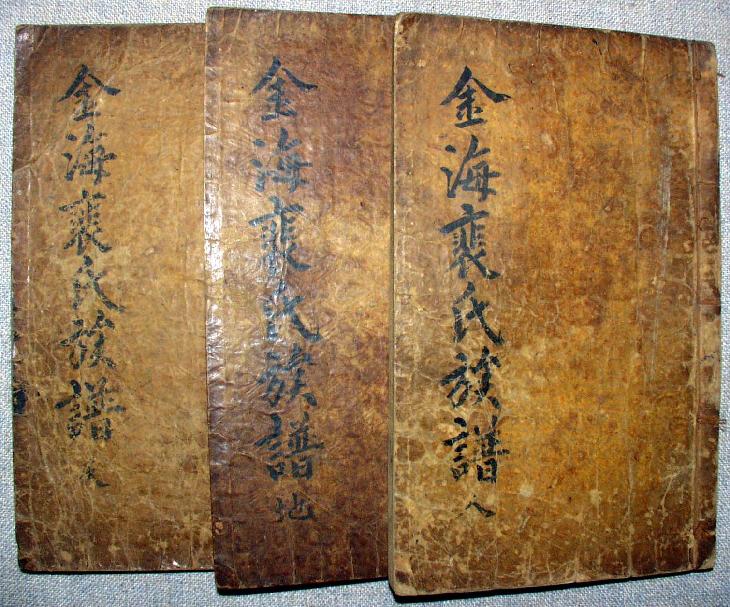 金海裵氏族譜 天
金海裵氏族譜 地
金海裵氏族譜 人